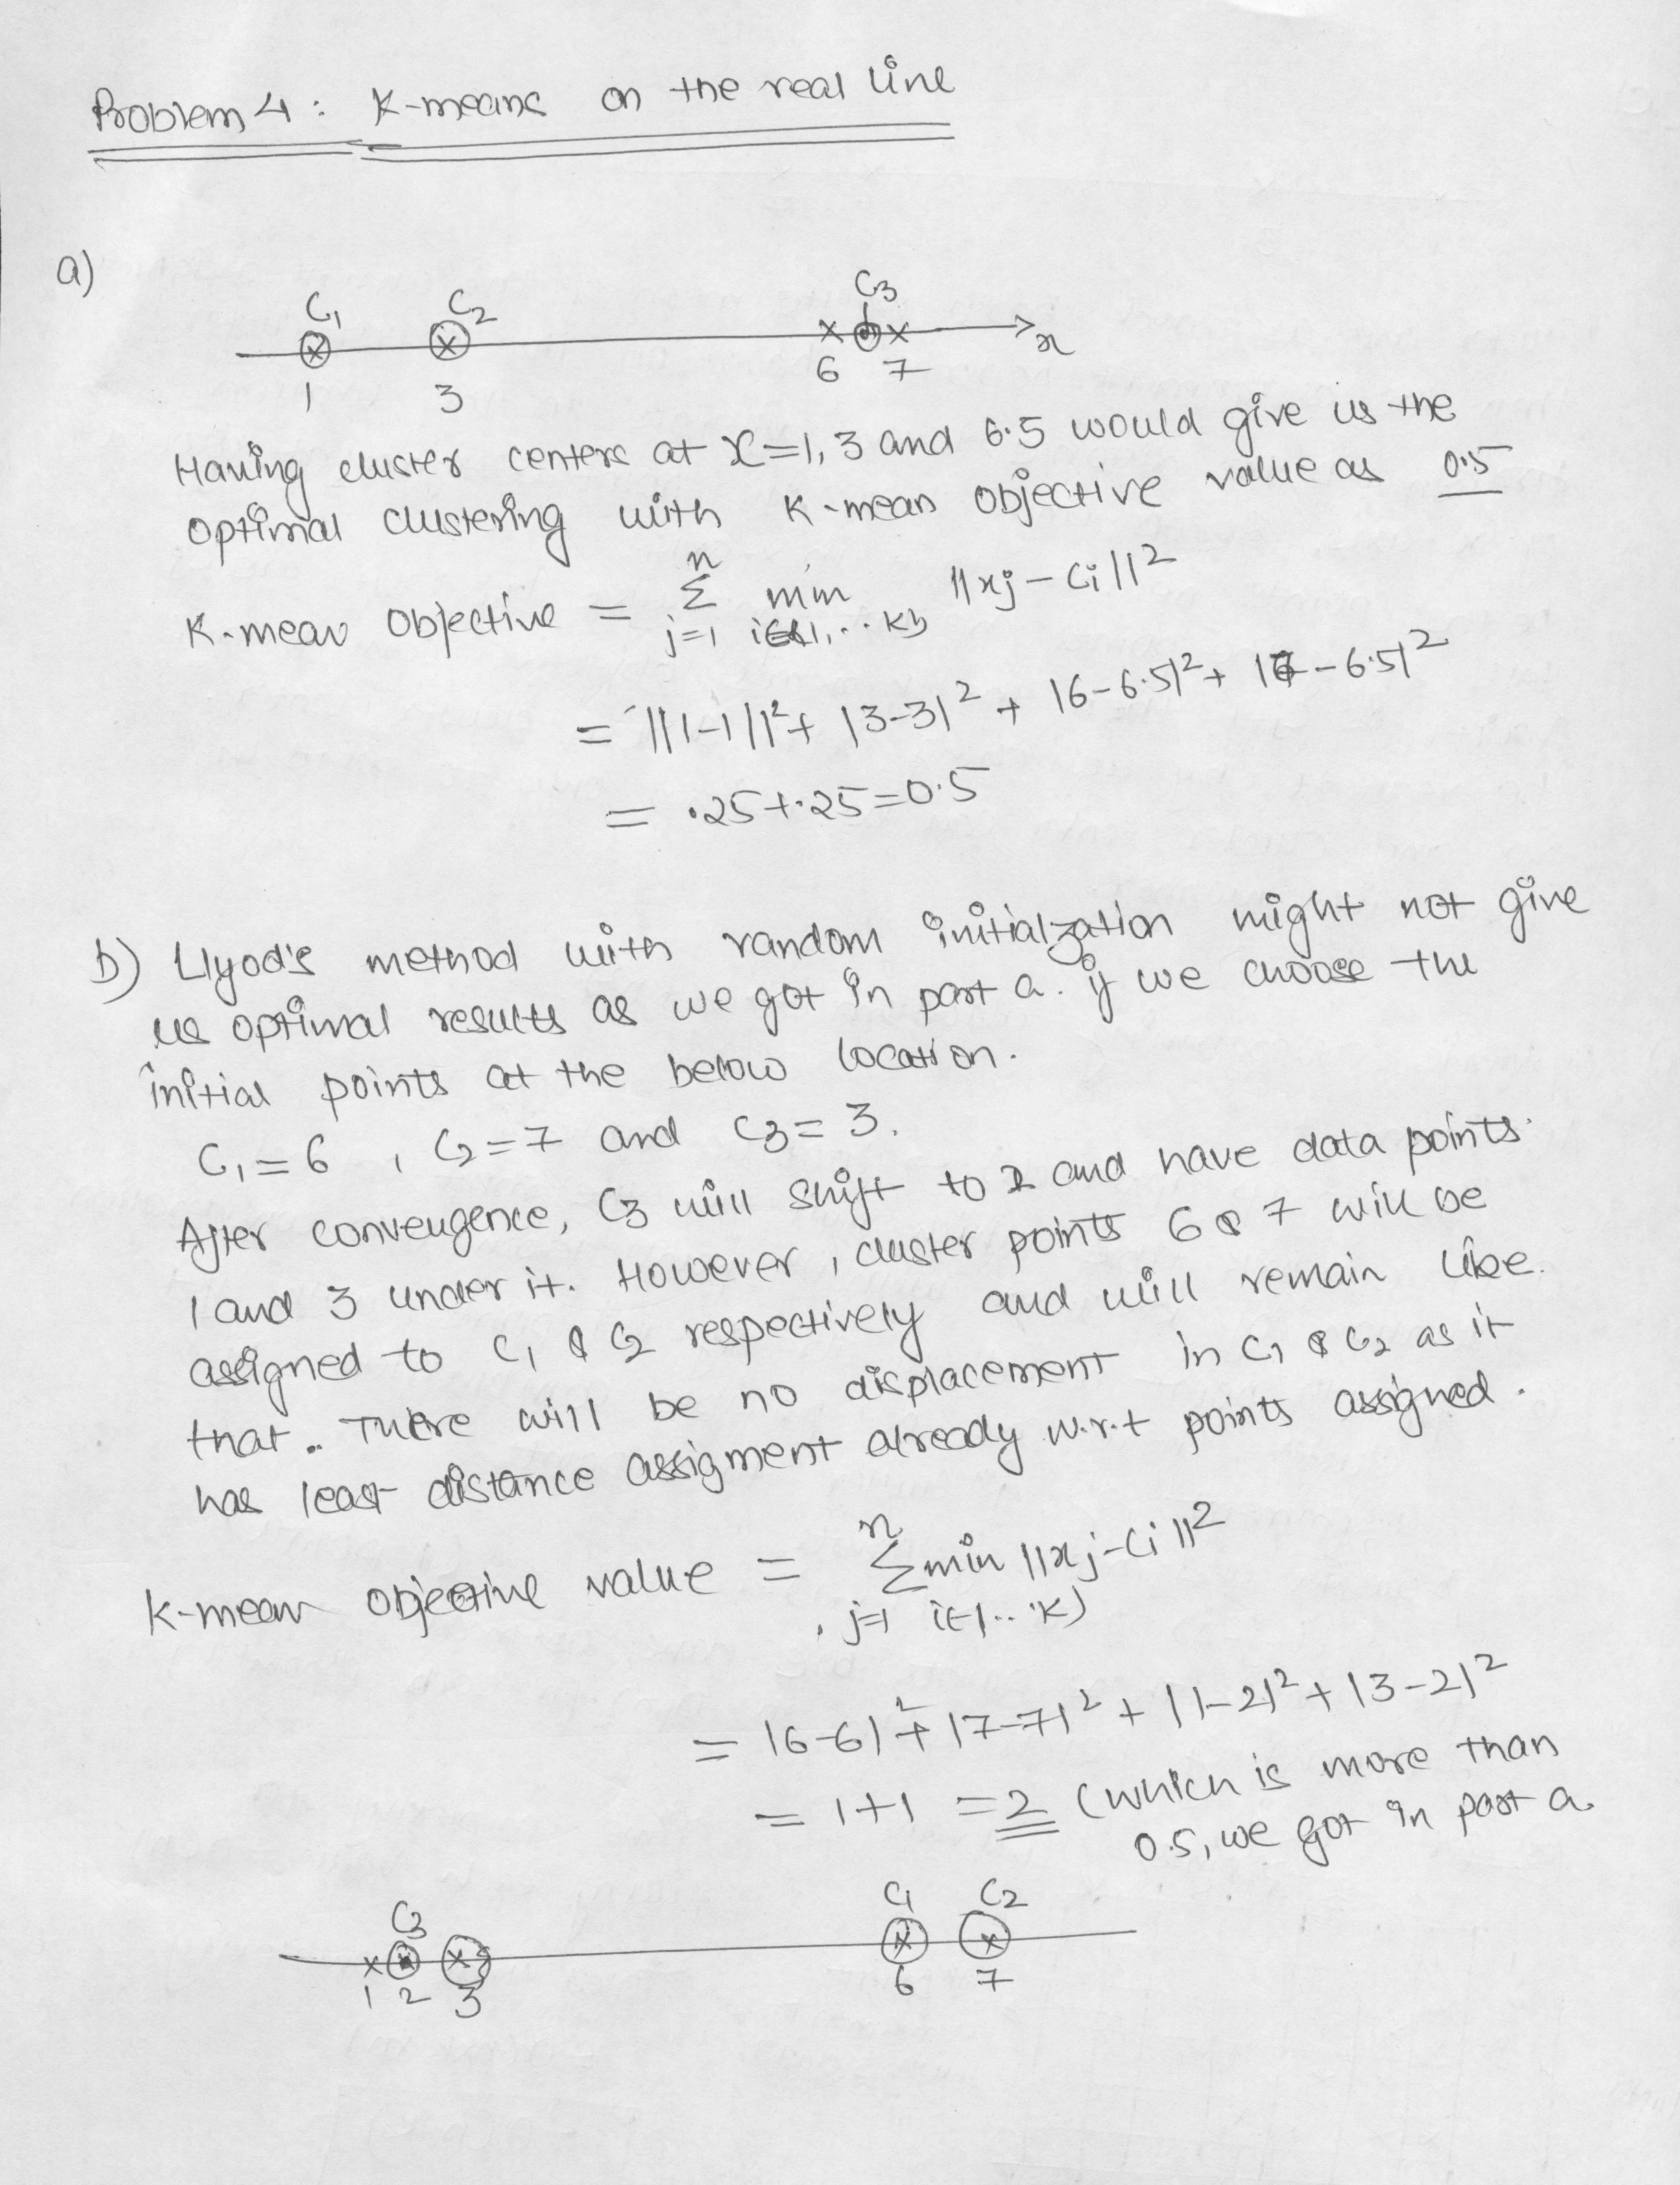 Problem 4 : K-means on the real line
a)
C1 C2 C3
x
1 3 6 7
Having cluster centers at x=1, 3 and 6.5 would give us the
optimal clustering with K-mean objective value as 0.5
K-mean Objective = n Σ j=1 min i∈{1,..K} ||xj - Ci||²
= ||1-1||² + |3-3|² + |6-6.5|² + |7-6.5|²
= .25+.25=0.5
b) Llyod's method with random initialzation might not give
us optimal results as we got in part a. if we choose the
initial points at the below location.
C1=6 , C2=7 and C3=3.
After convengence, C3 will shift to 2 and have data points
1 and 3 under it. However, cluster points 6 & 7 will be
assigned to C1 & C2 respectively and will remain like
that. There will be no displacement in C1 & C2 as it
has least distance assigment already w.r.t points assigned.
K-mean objective value = n Σ j=1 min i∈1..K) ||xj-Ci||²
= |6-6|² + |7-7|² + |1-2|² + |3-2|²
= 1+1 =2 (which is more than
0.5, we got in part a.
C3 C1 C2
1 2 3 6 7